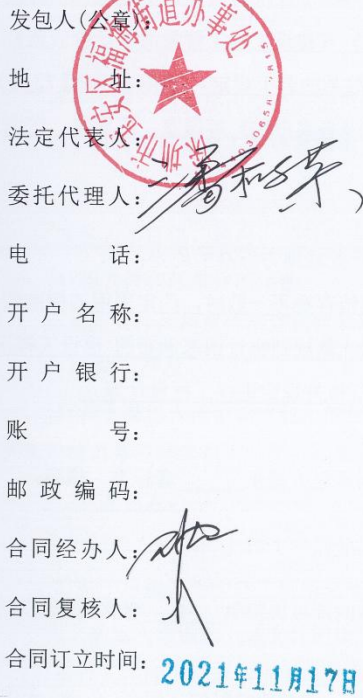 发包人(公章):
深圳市宝安区福海街道办事处
地 址:
法定代表人:
委托代理人:
电 话:
开户名称:
开户银行:
账 号:
邮政编码:
合同经办人:
合同复核人:
合同订立时间: 2021年11月17日